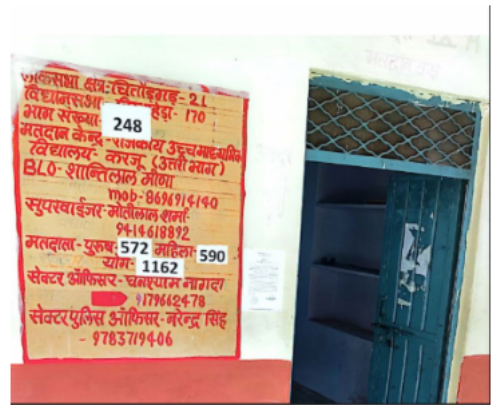 लोकसभा क्षेत्र-चित्तौड़गढ़-21
विधानसभा 170
भाग संख्या 248
मतदान केन्द्र-राजकीय उच्च माध्यमिक
विद्यालय- करजू (उत्तरी भाग)
BLO-शान्तिलाल मीणा
mob-8696914140
सुपरवाईजर-मोतीलाल शर्मा-
9414618892
मतदाता-पुरुष-572 महिला-590
योग-1162
सेक्टर ऑफिसर-घनश्याम नागदा
9179662478
सेक्टर पुलिस ऑफिसर-नरेन्द्र सिंह
-9783719406